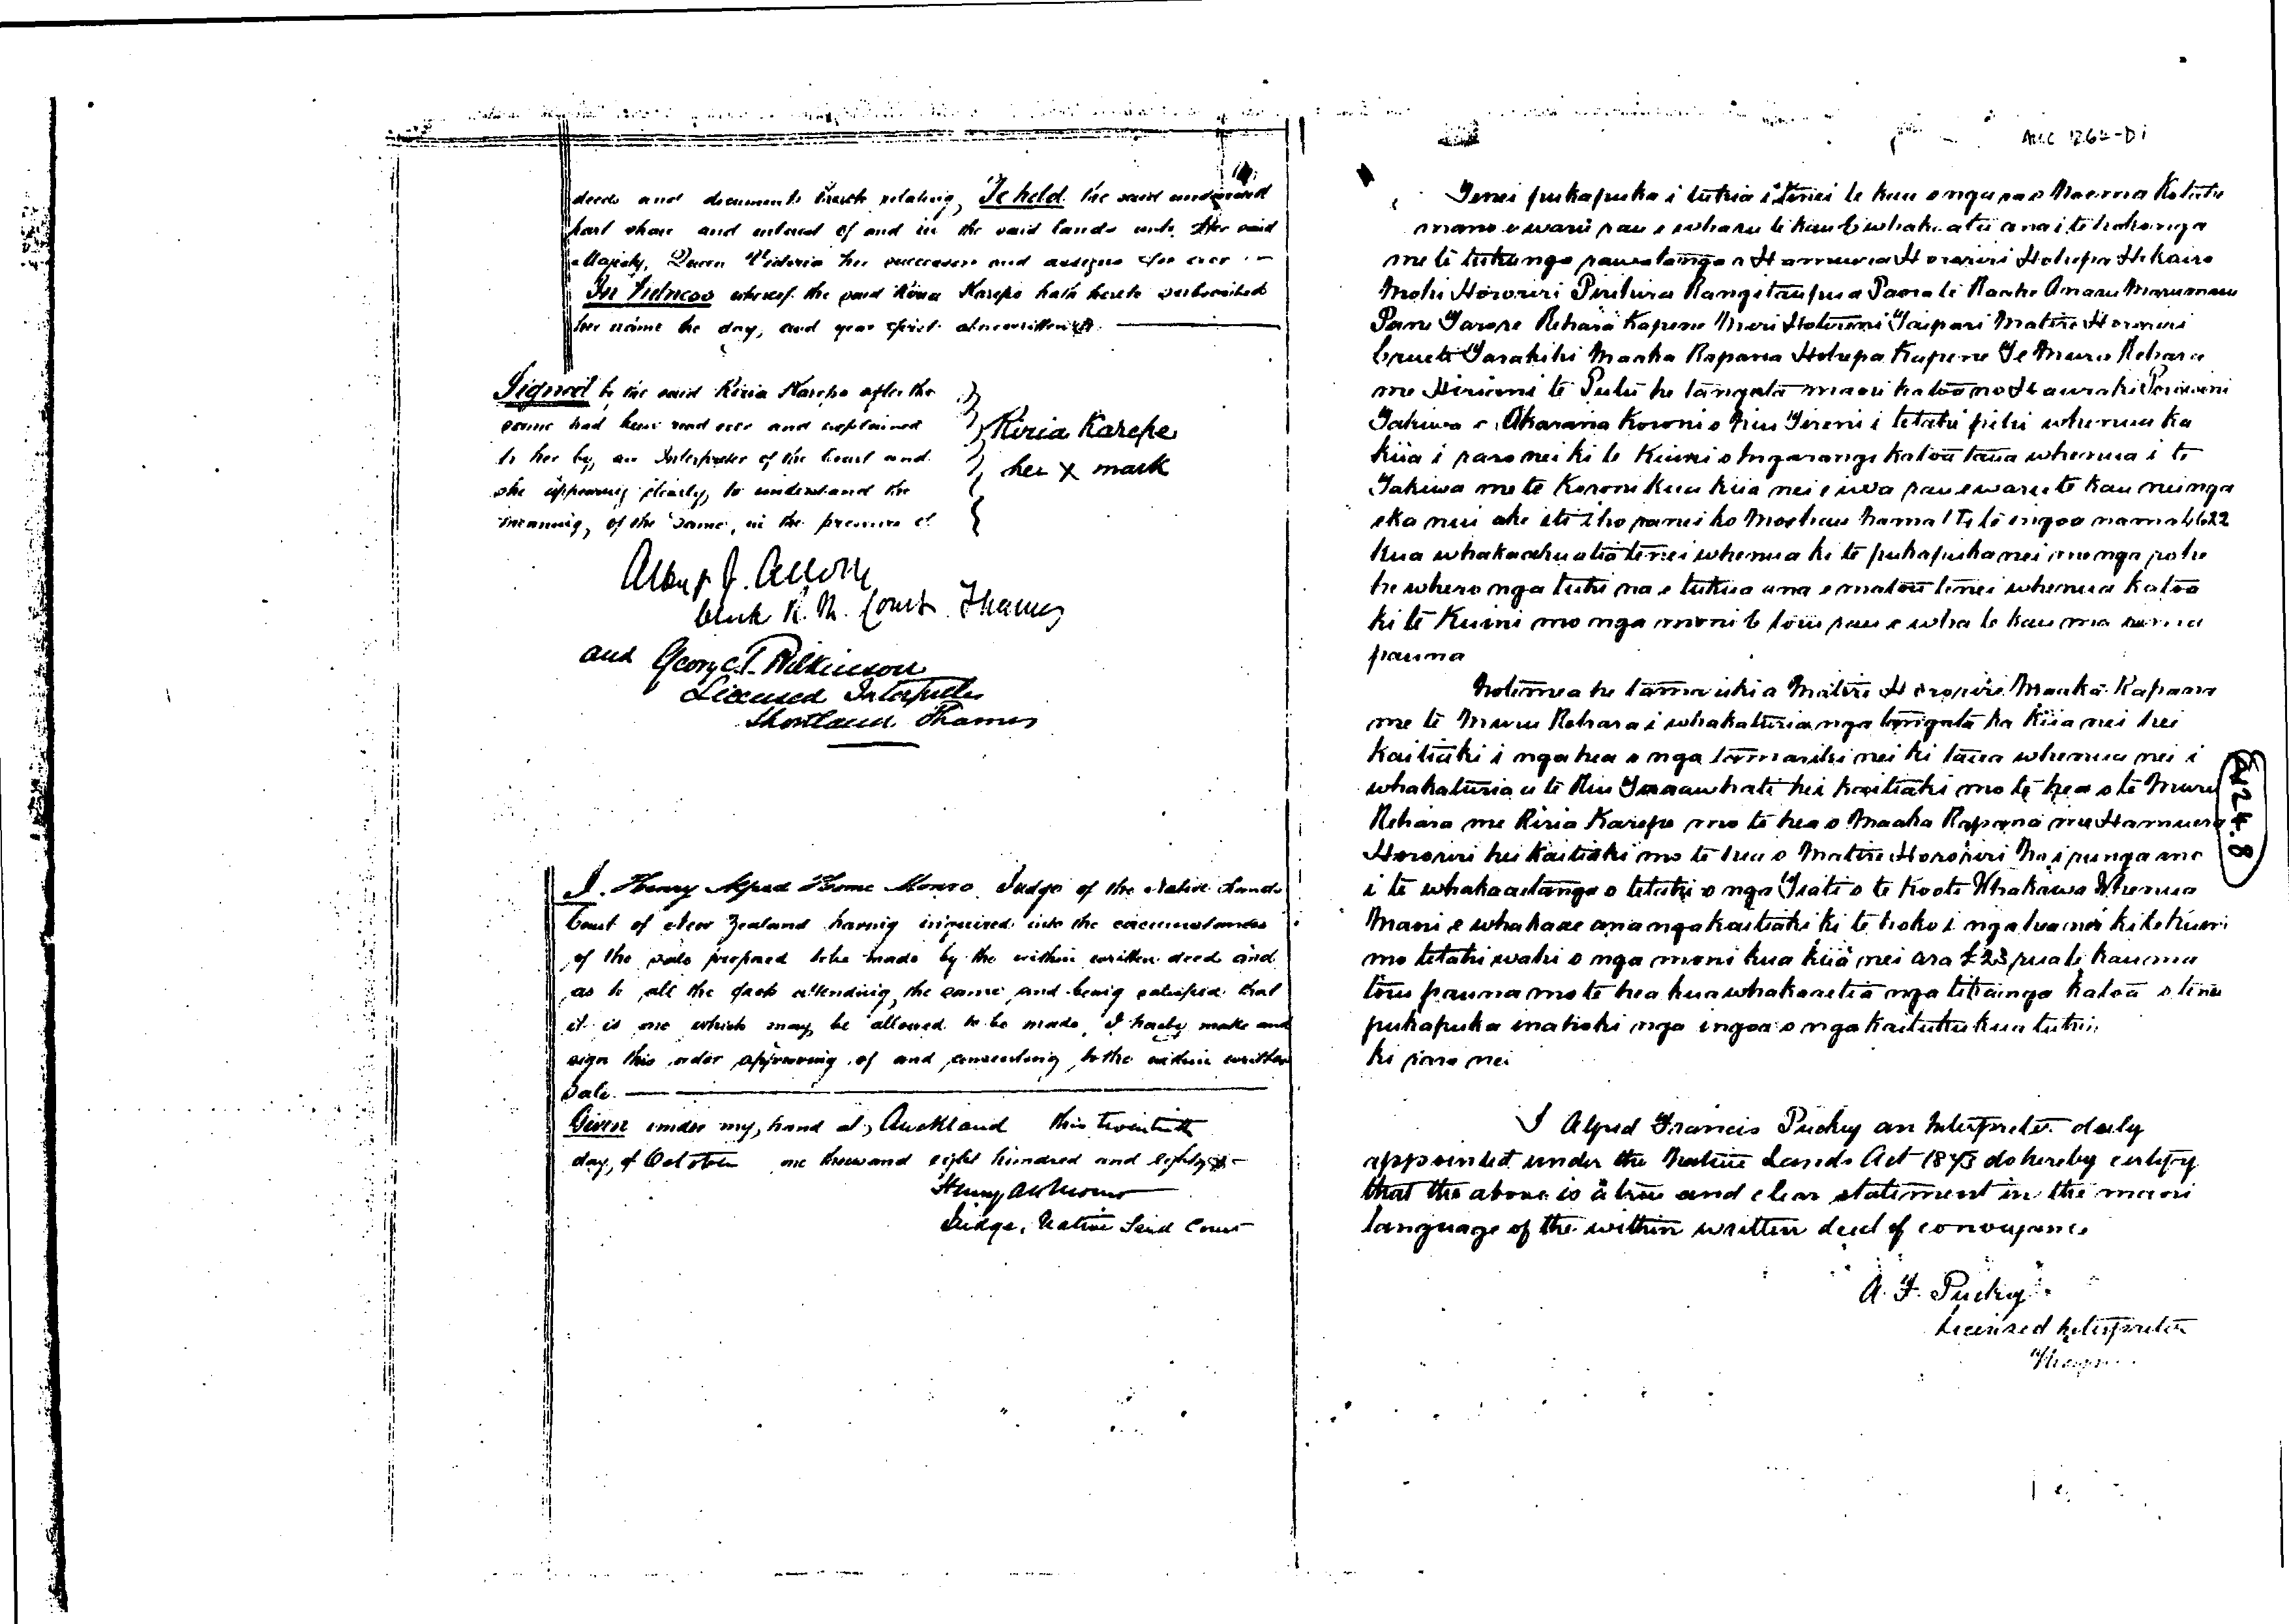 deeds and documents thereto relating, To hold the said undivided
part share and interest of and in the said lands unto Her said
Majesty, Queen Victoria her successors and assigns for ever
In Witness whereof the said Kiria Karepe hath hereto subscribed
her name the day, and year first abovewritten
Signed by the said Kiria Karepe after the
same had been read over and explained
to her by, an Interpreter of the Court and
she appearing clearly, to understand the
meaning, of the same, in the presence of
Kiria Karepe
her x mark
Albert J. Allom
Clerk R. M. Court Thames
and George T. Wilkinson
Licensed Interpreter
Shortland Thames
I. Henry Alfred Home Monro Judge of the Native Lands
Court of New Zealand having inquired into the circumstances
of the sale proposed to be made by the within written deed and
as to all the facts attending, the same and being satisfied that
it is one which may, be allowed to be made I hereby make and
sign this order approving of and consenting, to the within written
Sale.
Given under my, hand at, Auckland this twentieth
day, of October one thousand eight hundred and eighty
Henry A H Monro
Judge, Native Land Court
ACC 1264-D1
Tenei pukapuka i tuhia i tenei te kau o nga ra o Noema Kotahi
mano e waru rau e wha te kau whakaatu ana i te hokonga
me te tukunga rawatanga a Hamuera Hororiri Hohepa Hikairo
Mohi Hororiri Pirihira Rangitaupua Paora te Raahe Anaru Marumaru
Pane Tarore Rehara Kapene Meri Hotereni Taipari Matire Hororiri
Erueti Tarakihi Maaka Rapana Hohepa Kapene Te Muru Rehara
me Hirini te Putu he tangata maori katoa no Hauraki Porowini
Takiwa o Akarana Koroni o Niu Tireni i tetahi pihi whenua ka
kiia i raro nei ki te Kuini o Ingarangi katoa taua whenua i te
Takiwa me te Koroni kua kiia nei e iwa rau e waru te kau nei nga
eka nui ake iti iho ranei ko Moehau Nama 1 T te ingoa nama 4622
kua whakaahuatia tenei whenua ki te pukapuka nei me nga rohe
he whero nga tuhi na e tukua ana e matou tenei whenua katoa
ki te Kuini mo nga moni e toru rau e wha te kau ma
pauna
Notemea he tamariki a Matire Hororiri Maaka Rapana
me te Muru Rehara i whakaturia nga tangata ka kiia nei hei
kaitiaki i nga hea o nga tamariki nei ki taua whenua nei i
whakaturia a te Niu Taaawhate hei kaitiaki mo te hea o te Muru
Rehara me Kiria Karepe mo te hea o Maaka Rapana me Hamuera
Hororiri hei kaitiaki mo te hea o Matire Hororiri Na i runga ano
i te whakaaetanga o tetahi o nga Tiati o te Kooti Whakawa Whenua
Maori e whakaae ana nga kaitiaki ki te hoko i nga hea nei ki te Kuini
mo tetahi wahi o nga moni kua kiia nei ara £23 rua te kau ma
toru pauna mo te hea kua whakaaetia nga tikanga katoa o tenei
pukapuka inahoki nga ingoa o nga kaituku kua tuhi
ki raro nei
I Alfred Francis Puckey an Interpreter duly
appointed under the Native Lands Act 1873 do hereby certify
that the above is a true and clear statement in the maori
language of the within written deed of conveyance
A. F. Puckey
Licensed Interpreter
Thames